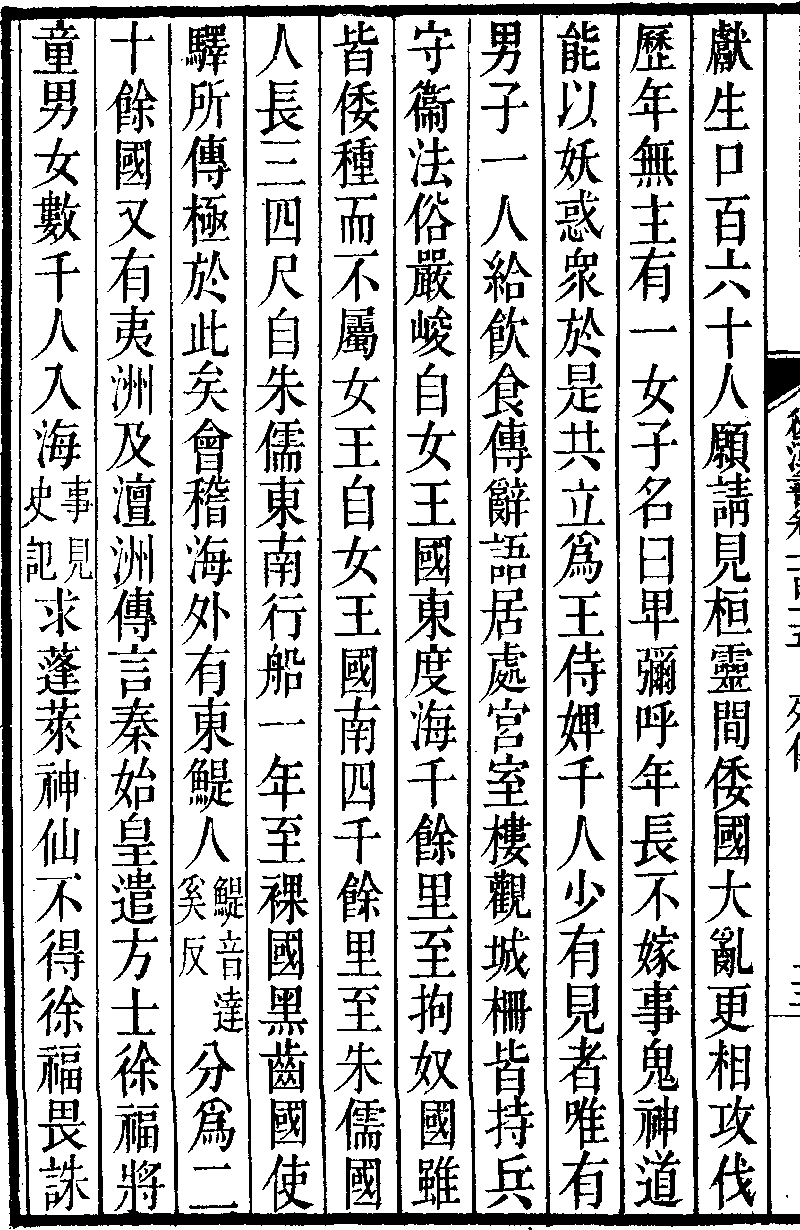 獻生口百六十人願請見桓靈間倭國大亂更相攻伐
歷年無主有一女子名曰卑彌呼年長不嫁事鬼神道
能以妖惑衆於是共立爲王侍婢千人少有見者唯有
男子一人給飲食傳辭語居處宮室樓觀城柵皆持兵
守衞法俗嚴峻自女王國東度海千餘里至拘奴國雖
皆倭種而不屬女王自女王國南四千餘里至朱儒國
人長三四尺自朱儒東南行船一年至裸國黑齒國使
驛所傳極於此矣會稽海外有東鯷人鯷音達奚反分爲二
十餘國又有夷洲及澶洲傳言秦始皇遣方士徐福將
童男女數千人入海事見史記求蓬萊神仙不得徐福畏誅